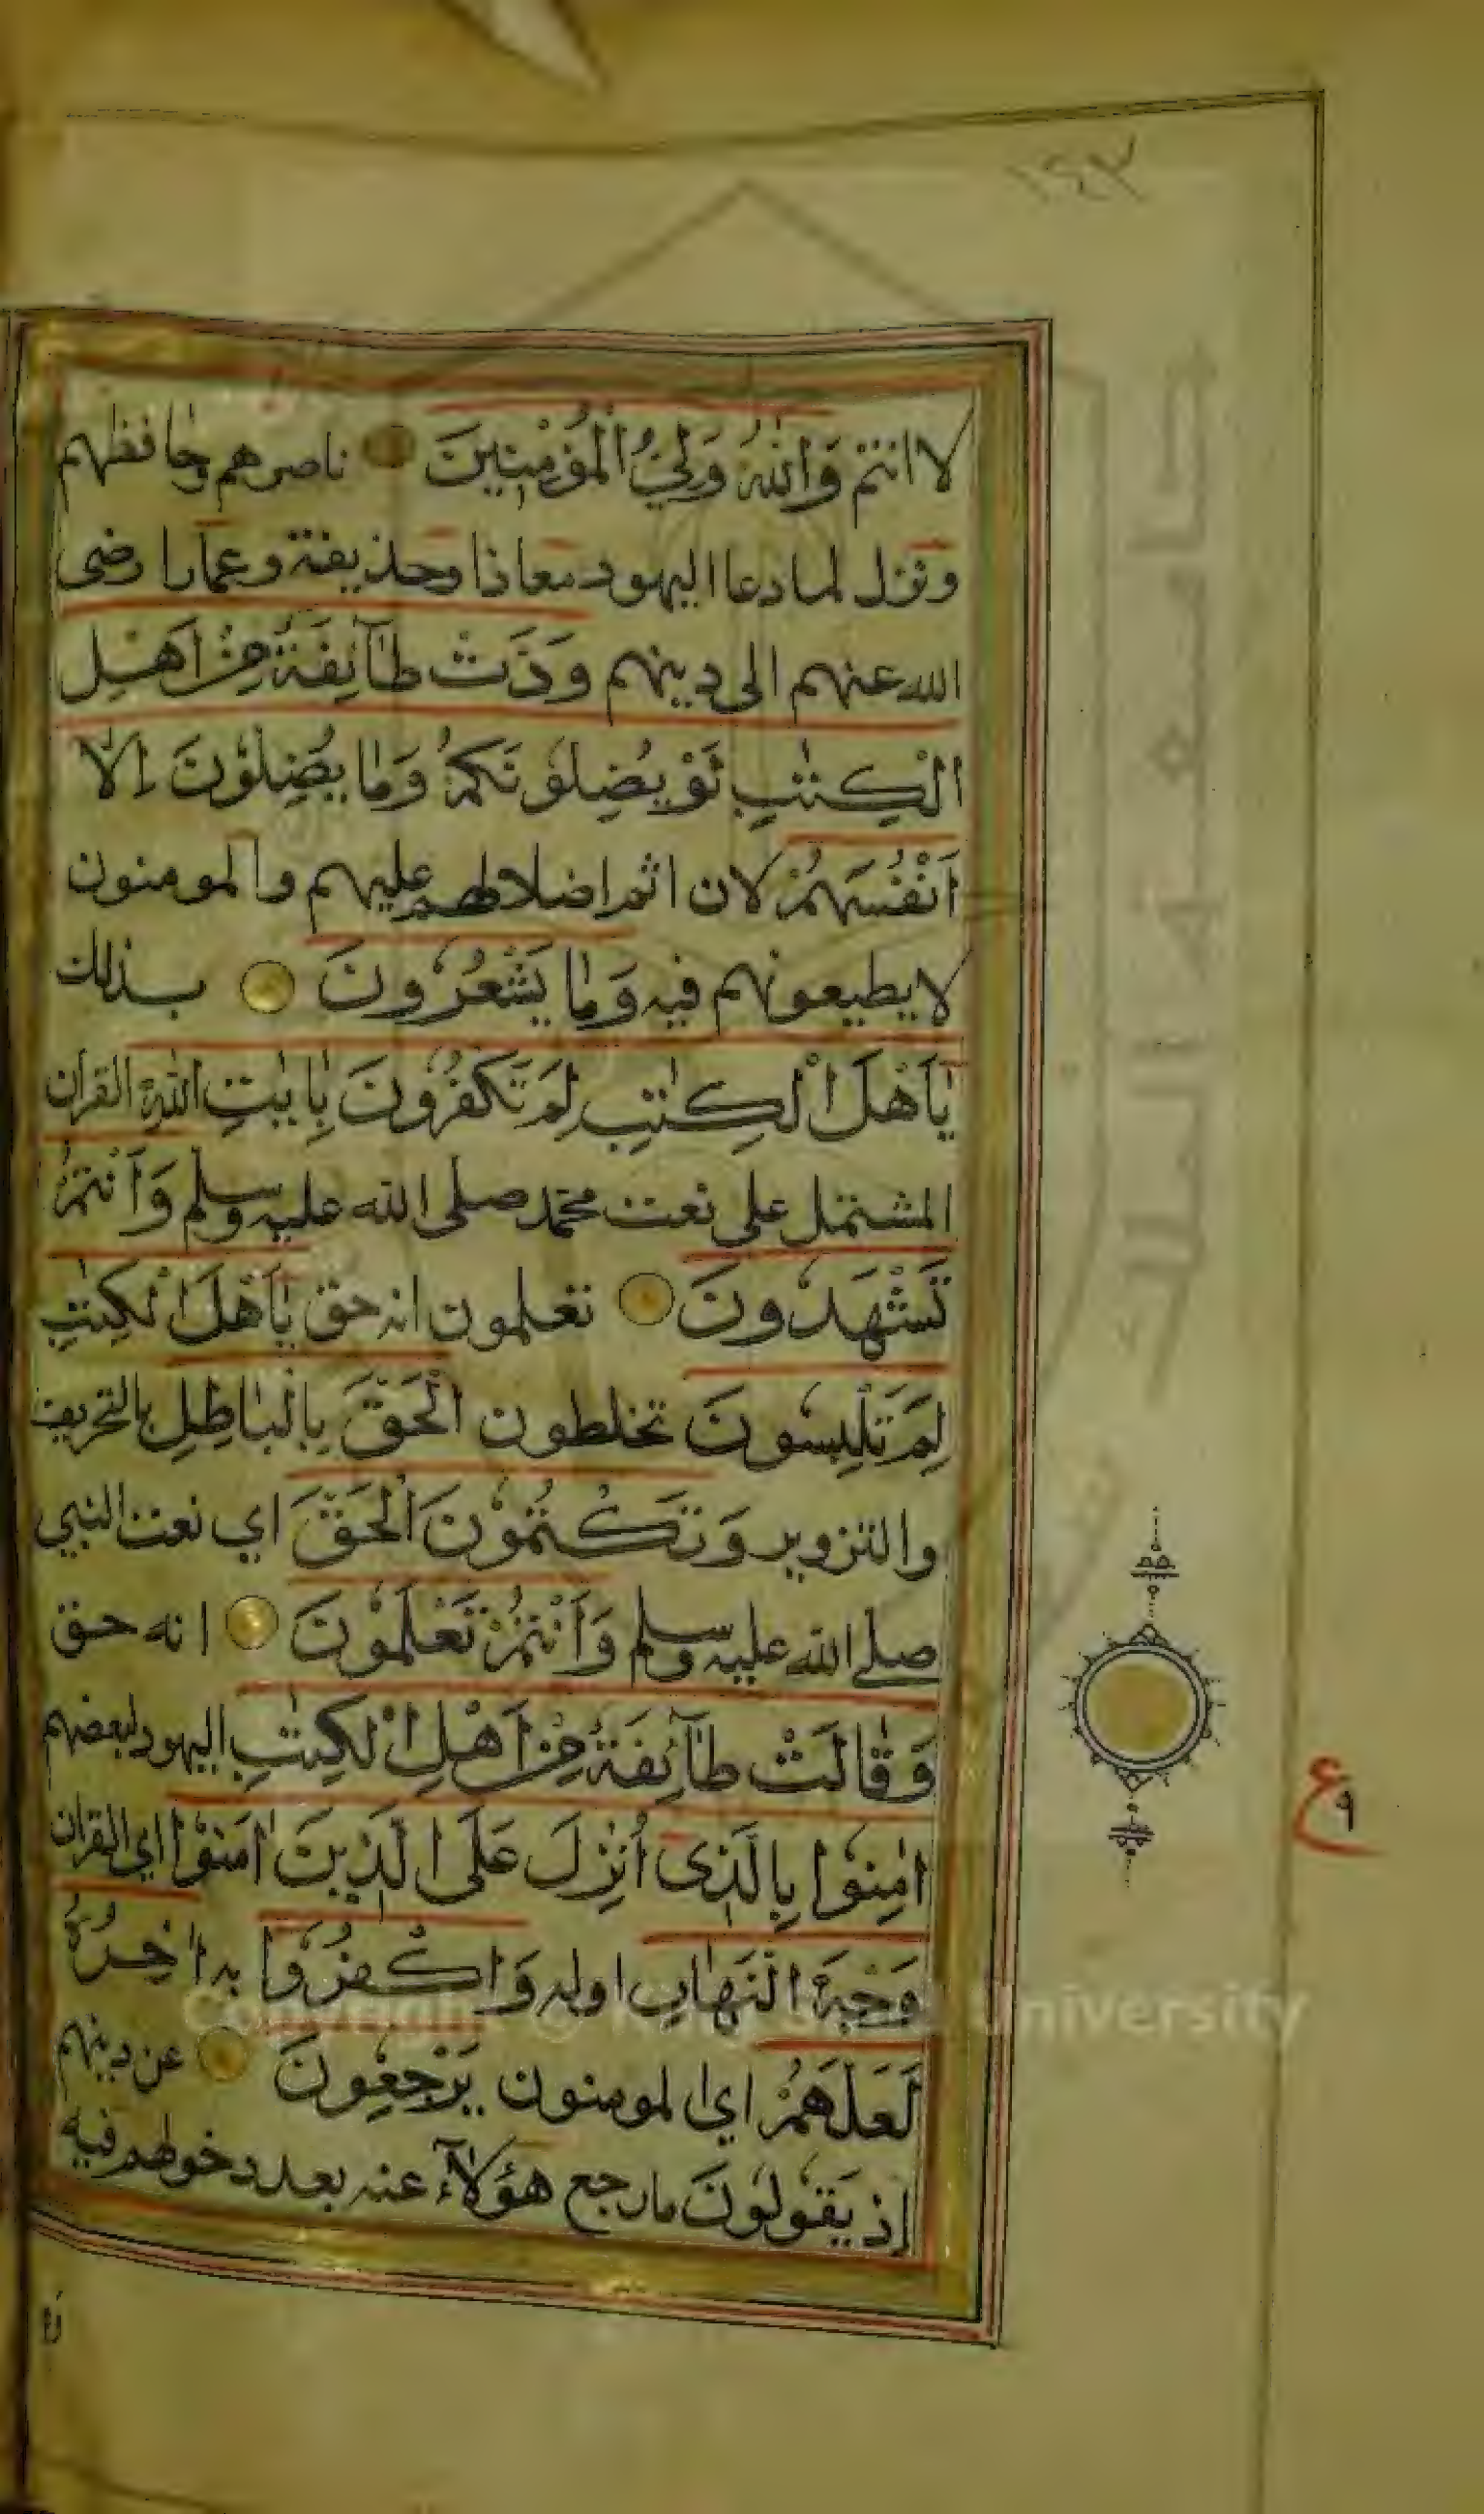 ١٤٣
لا انتم وَاللّٰهُ وَلِيُّ الْمُؤْمِنِينَ ناصرهم وحافظهم
ونزل لما دعا اليهود معاذا وحذيفة وعمارا رضى
الله عنهم الى دينهم وَدَّتْ طَآئِفَةٌ مِّنْ اَهْلِ
الْكِتٰبِ لَوْ يُضِلُّوْنَكُمْ وَمَا يُضِلُّوْنَ اِلَّا
اَنْفُسَهُمْ لان اثم اضلالهم عليهم والمومنون
لا يطيعونهم فيه وَمَا يَشْعُرُونَ بذلك
يٰاَهْلَ الْكِتٰبِ لِمَ تَكْفُرُونَ بِاٰيٰتِ اللّٰهِ القران
المشتمل على نعت محمد صلى الله عليه وسلم وَاَنْتُمْ
تَشْهَدُونَ تعلمون انه حق يٰاَهْلَ الْكِتٰبِ
لِمَ تَلْبِسُونَ تخلطون الْحَقَّ بِالْبَاطِلِ بالتحريف
والتزوير وَتَكْتُمُوْنَ الْحَقَّ اي نعت النبي
صلى الله عليه وسلم وَاَنْتُمْ تَعْلَمُوْنَ انه حق
وَقَالَتْ طَآئِفَةٌ مِّنْ اَهْلِ الْكِتٰبِ اليهود لبعضهم
اٰمِنُوْا بِالَّذِى اُنْزِلَ عَلَى الَّذِيْنَ اٰمَنُوْا اي القران
وَجْهَ النَّهَارِ اوله وَاكْفُرُوْا به اٰخِرَهُ
لَعَلَّهُمْ اي المومنون يَرْجِعُونَ عن دينهم
اِذ يَقُولُونَ ما رجع هٰؤُلَآءِ عنه بعد دخولهم فيه
ع
٩
Copyright © King Saud University